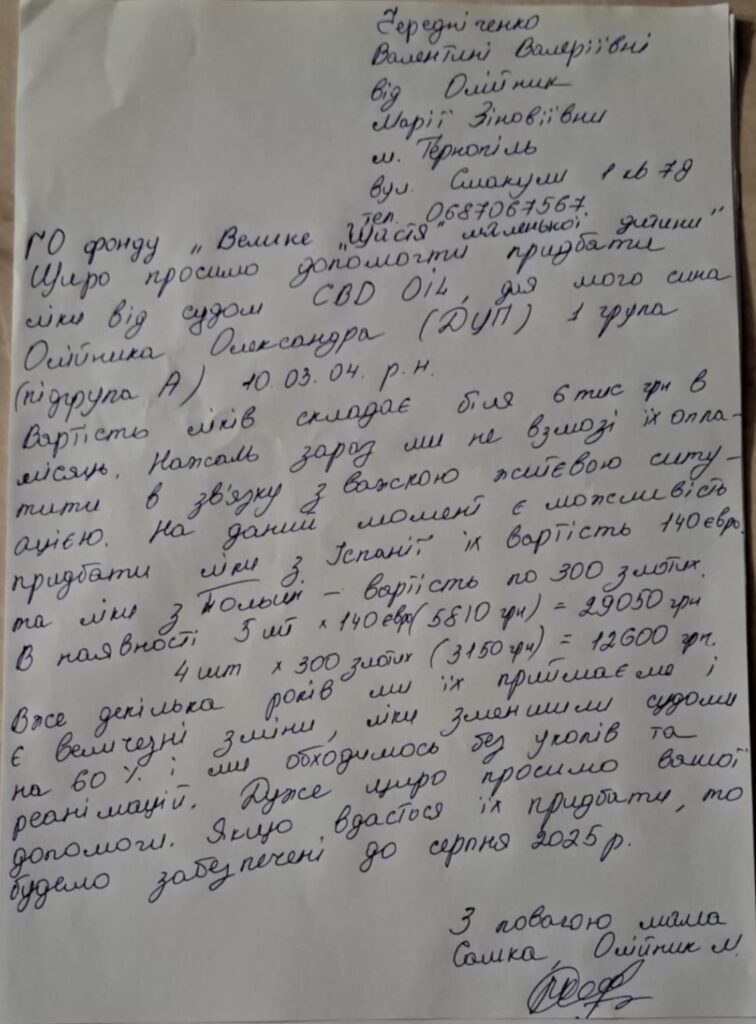 Чередніченко
Валентині Валеріївні
від Олійник
Марії Зіновіївни
м. Тернопіль
вул. Смакули 1 кв 79
тел. 0687067567.
ГО фонду „Велике „Щастя" маленької дитини"
Щиро просимо допомогти придбати
ліки від судом CBD OiL, для мого сина
Олійника Олександра (ДЦП) 1 група
(підгрупа А) 10.03.04. р.н.
Вартість ліків складає біля 6 тис грн в
місяць. Нажаль зараз ми не взмозі їх опла-
тити в зв'язку з важкою житєвою ситу-
ацією. На даний момент є можливість
придбати ліки з Іспанії їх вартість 140 євро.
та ліки з Польщі – вартість по 300 злотих.
В наявності 5 шт × 140 євро (5810 грн) = 29050 грн
4 шт × 300 злотих (3150 грн) = 12600 грн.
Вже декілька років ми їх приймаємо і
є величезні зміни, ліки зменшили судоми
на 60 % і ми обходимось без уколів та
реанімацій. Дуже щиро просимо вашої
допомоги. Якщо вдасться їх придбати, то
будемо забезпечені до серпня 2025 р.
З повагою мама
Сашка, Олійник М.